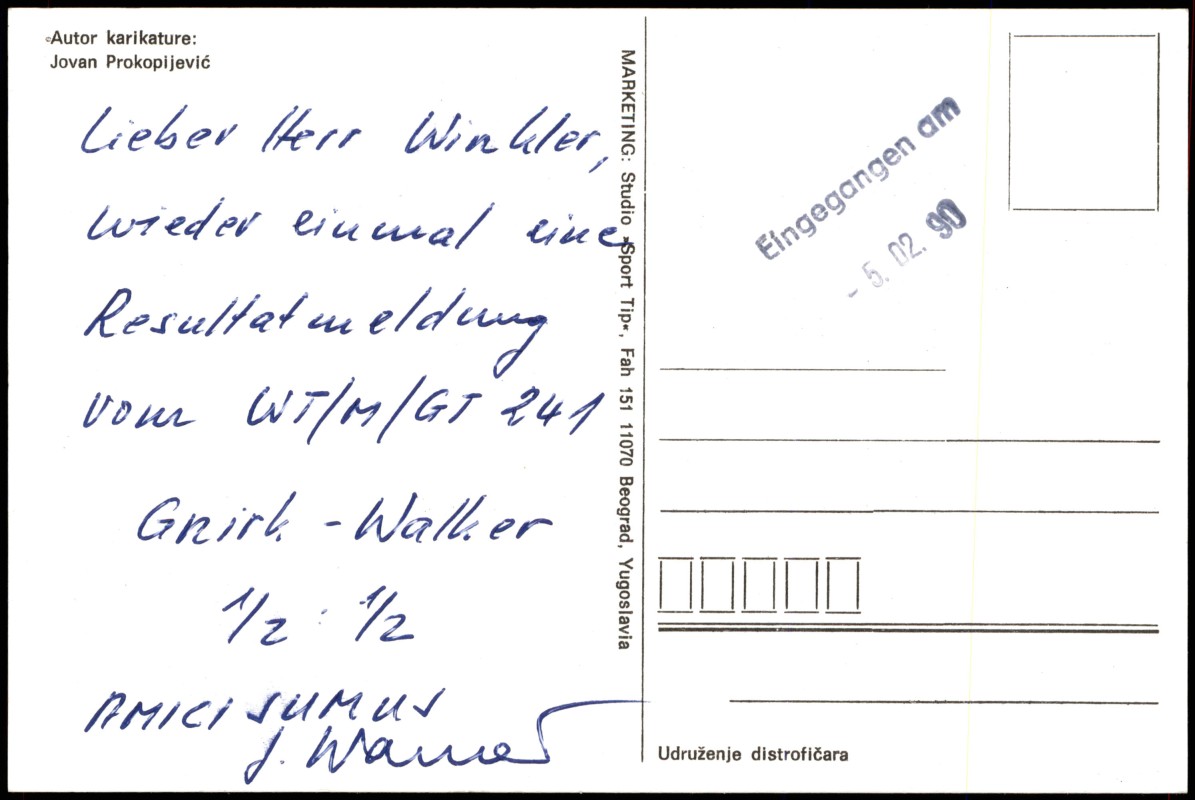 ©Autor karikature:
Jovan Prokopijević
Lieber Herr Winkler,
wieder einmal eine
Resultatmeldung
vom WT/M/GT 241
- Walker
1/2 : 1/2
AMICI SUMUS
J.
MARKETING: Studio »Sport Tip«, Fah 151 11070 Beograd, Yugoslavia
Eingegangen am
- 5. 02. 90
Udruženje distrofičara